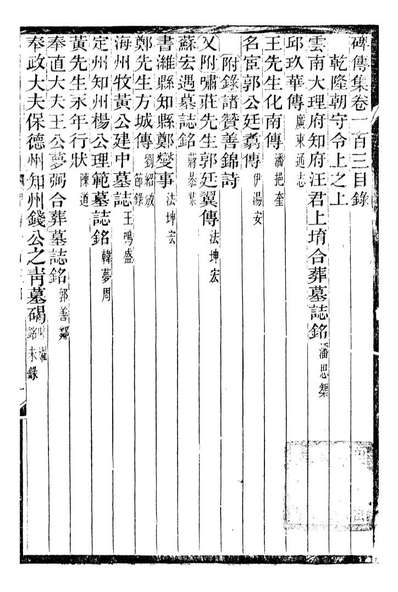 碑傳集卷一百三目錄
乾隆朝守令上之上
雲南大理府知府汪君上堉合葬墓誌銘 潘思榘
邱玖華傳 廣東通志
王先生化南傳 潘挹奎
名宦郭公廷翥傳 伊湯安
附錄諸贊善錦詩
又附嘯莊先生郭廷翼傳 法坤宏
蘇宏遇墓誌銘
書濰縣知縣鄭燮事 法坤宏
鄭先生方城傳 劉紹攽 節錄
海州牧黃公建中墓誌 王鳴盛
定州知州楊公理範墓誌銘 韓夢周
黃先生永年行狀 陳道
奉直大夫王公夢弼合葬墓誌銘
奉政大夫保德州知州錢公之青墓碣 銘未錄